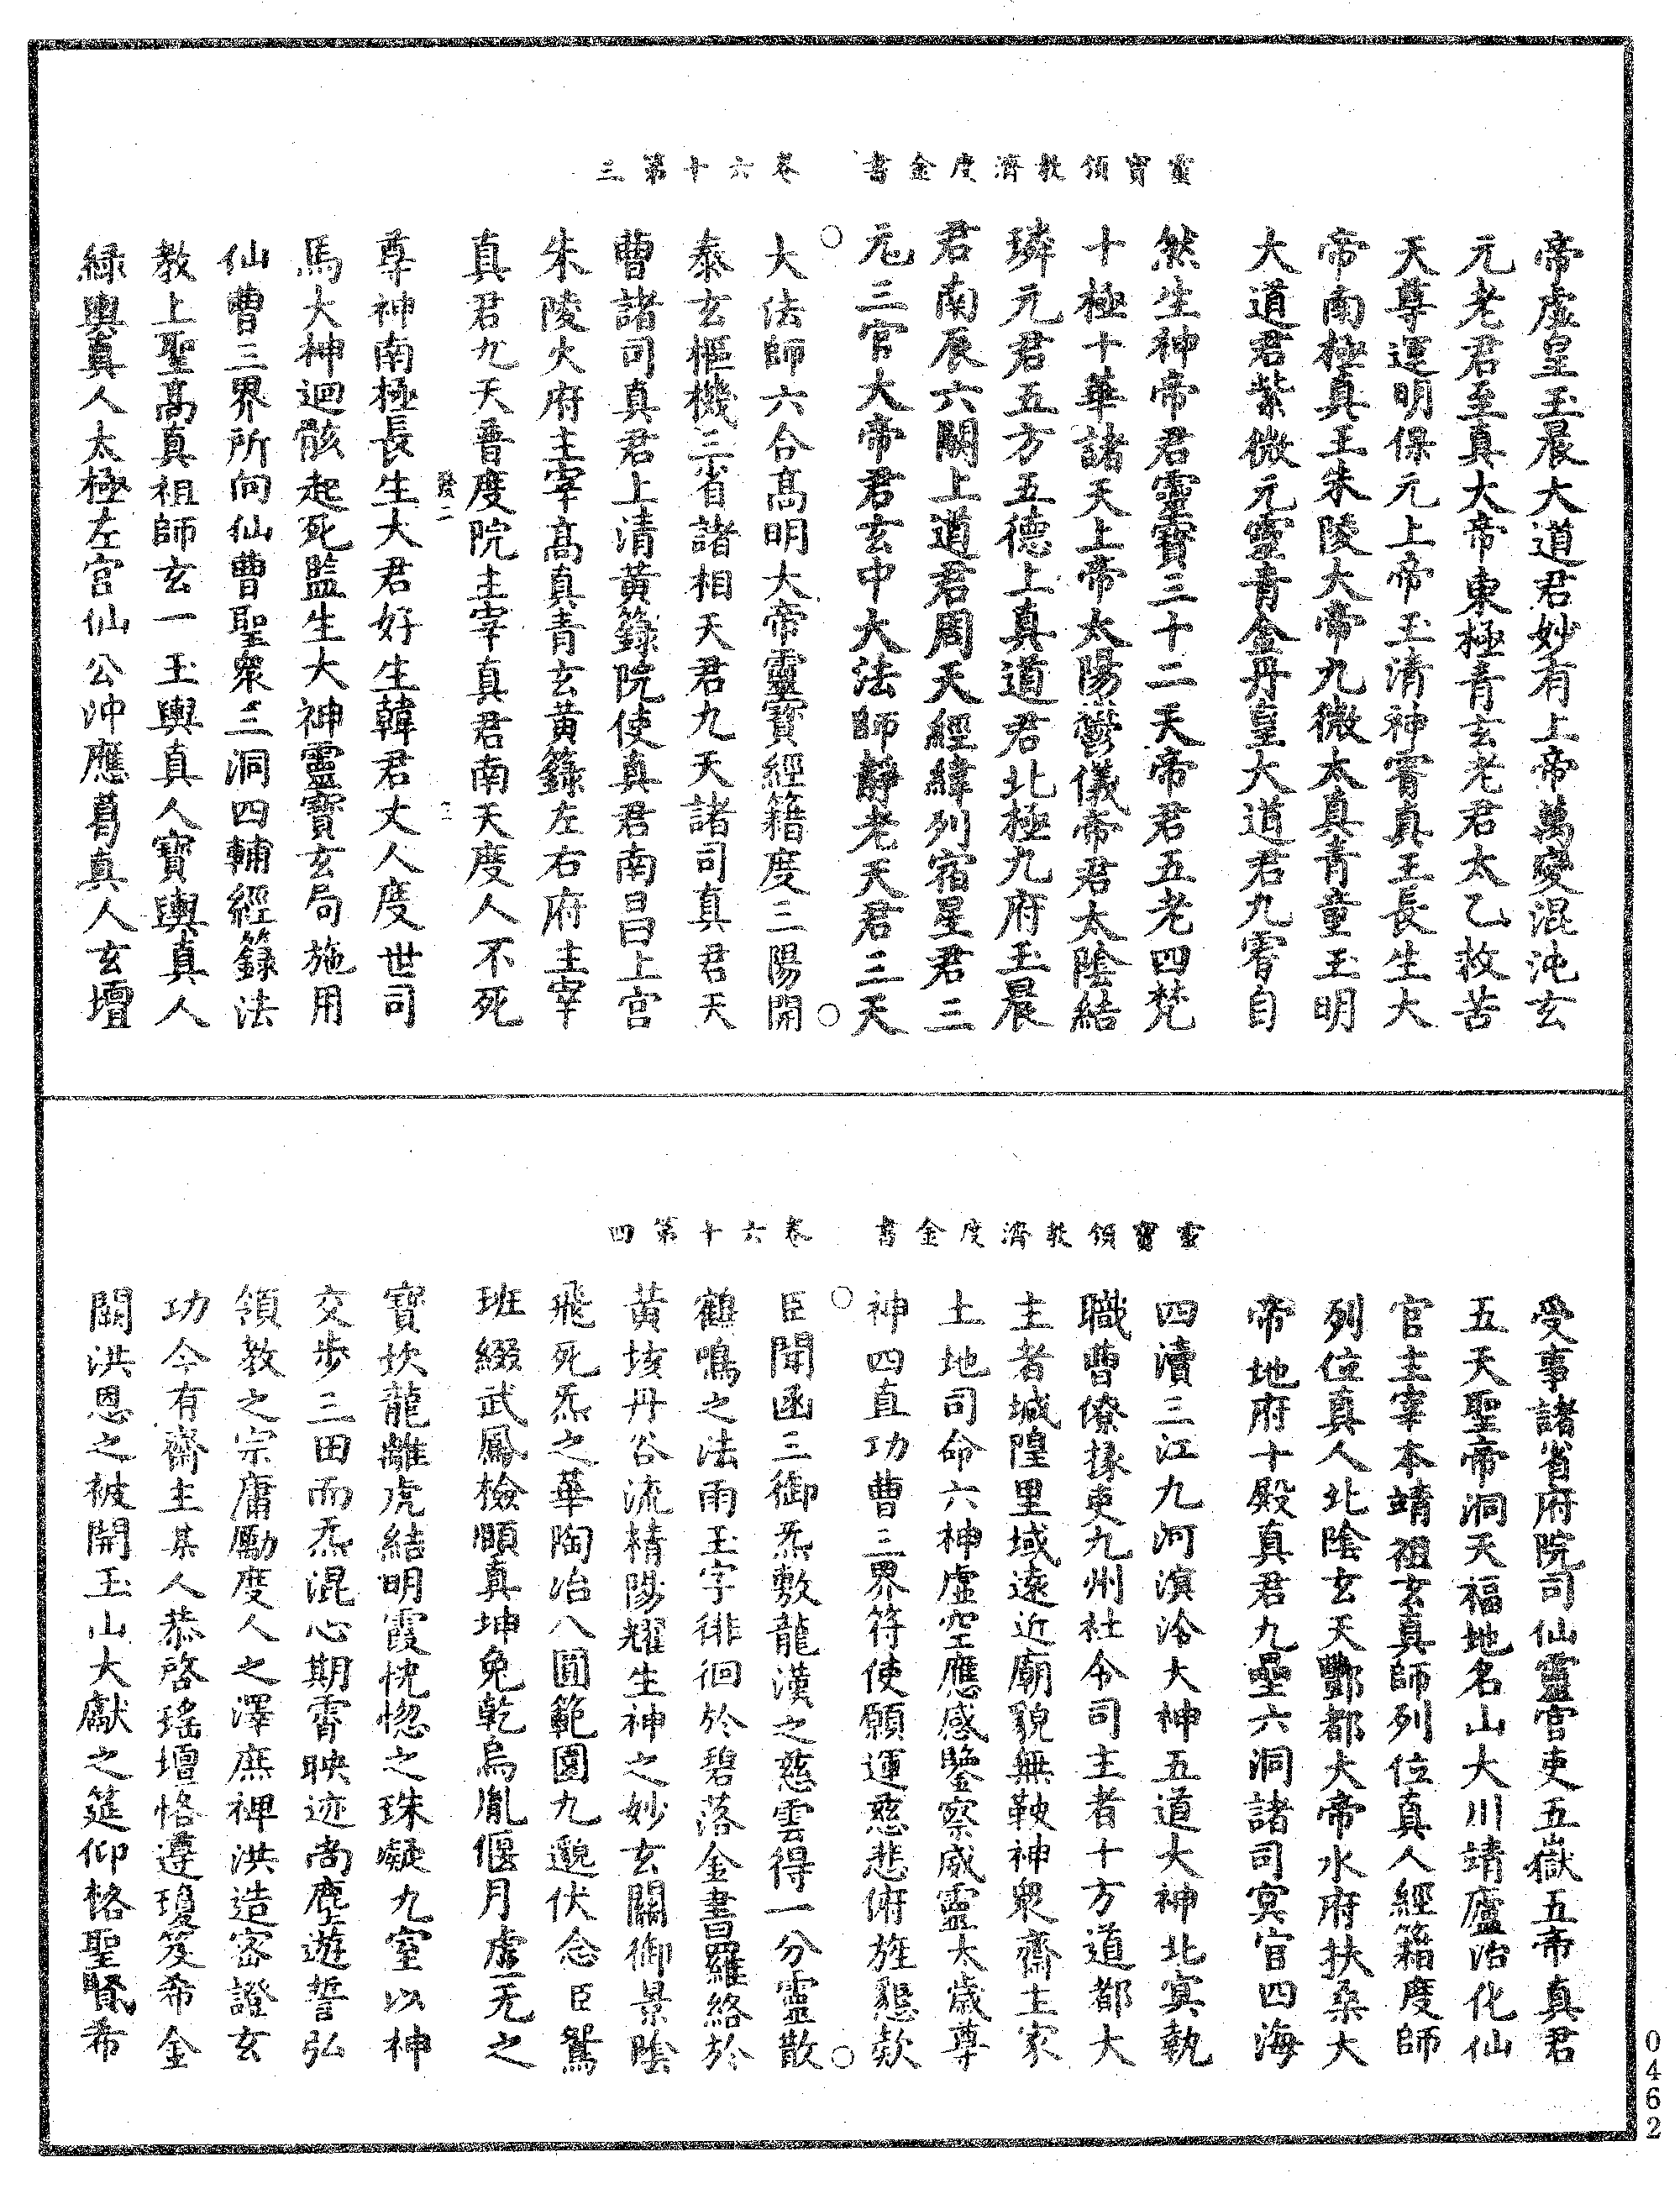 靈寶領教濟度金書　卷六十第三
帝虛皇玉晨大道君妙有上帝萬變混沌玄
元老君至真大帝東極青玄老君太乙救苦
天尊運明保元上帝玉清神霄真王長生大
帝南極真王朱陵大帝九微太真青童玉明
大道君紫微元靈青金丹皇大道君九霄自
然生神帝君靈寶三十二天帝君五老四梵
十極十華諸天上帝太陽鬱儀帝君太陰結
璘元君五方五德上真道君北極九府玉晨
君南辰六關上道君周天經緯列宿星君三
元三官大帝君玄中大法師靜老天君三天
大法師六合高明大帝靈寶經籍度三陽開
泰玄樞機三省諸相天君九天諸司真君天
曹諸司真君上清黃籙院使真君南昌上宮
朱陵火府主宰高真青玄黃籙左右府主宰
真君九天普度院主宰真君南天度人不死
尊神南極長生大君好生韓君丈人度世司
馬大神迴骸起死監生大神靈寶玄局施用
仙曹三界所向仙曹聖眾三洞四輔經籙法
教上聖高真祖師玄一玉輿真人寶輿真人
綠輿真人太極左宮仙公沖應葛真人玄壇
靈寶領教濟度金書　卷六十第四
受事諸省府院司仙靈官吏五嶽五帝真君
五天聖帝洞天福地名山大川靖廬治化仙
官主宰本靖祖玄真師列位真人經籍度師
列位真人北陰玄天酆都大帝水府扶桑大
帝地府十殿真君九壘六洞諸司冥官四海
四瀆三江九河溟泠大神五道大神北冥執
職曹僚掾吏九州社令司主者十方道都大
主者城隍里域遠近廟貌無鞅神眾齋主家
土地司命六神虛空應感鑒察威靈太歲尊
神四直功曹三界符使願運慈悲俯旌懇欵
臣聞函三御炁敷龍漢之慈雲得一分靈散
鶴鳴之法雨玉字徘徊於碧落金書羅絡於
黃垓丹谷流精陽耀生神之妙玄關御景陰
飛死炁之華陶冶八圓範圍九邈伏念臣鴛
班綴武鳳檢頤真坤兔乾烏胤偃月虛无之
寶坎龍離虎結明霞恍惚之珠凝九室以神
交步三田而炁混心期霄映迹尚塵遊誓弘
領教之宗庸勵度人之澤庶裨洪造密證玄
功今有齋主某人恭啓瑤壇恪遵瓊笈希金
闕洪恩之被開玉山大獻之筵仰格聖賢希
0462